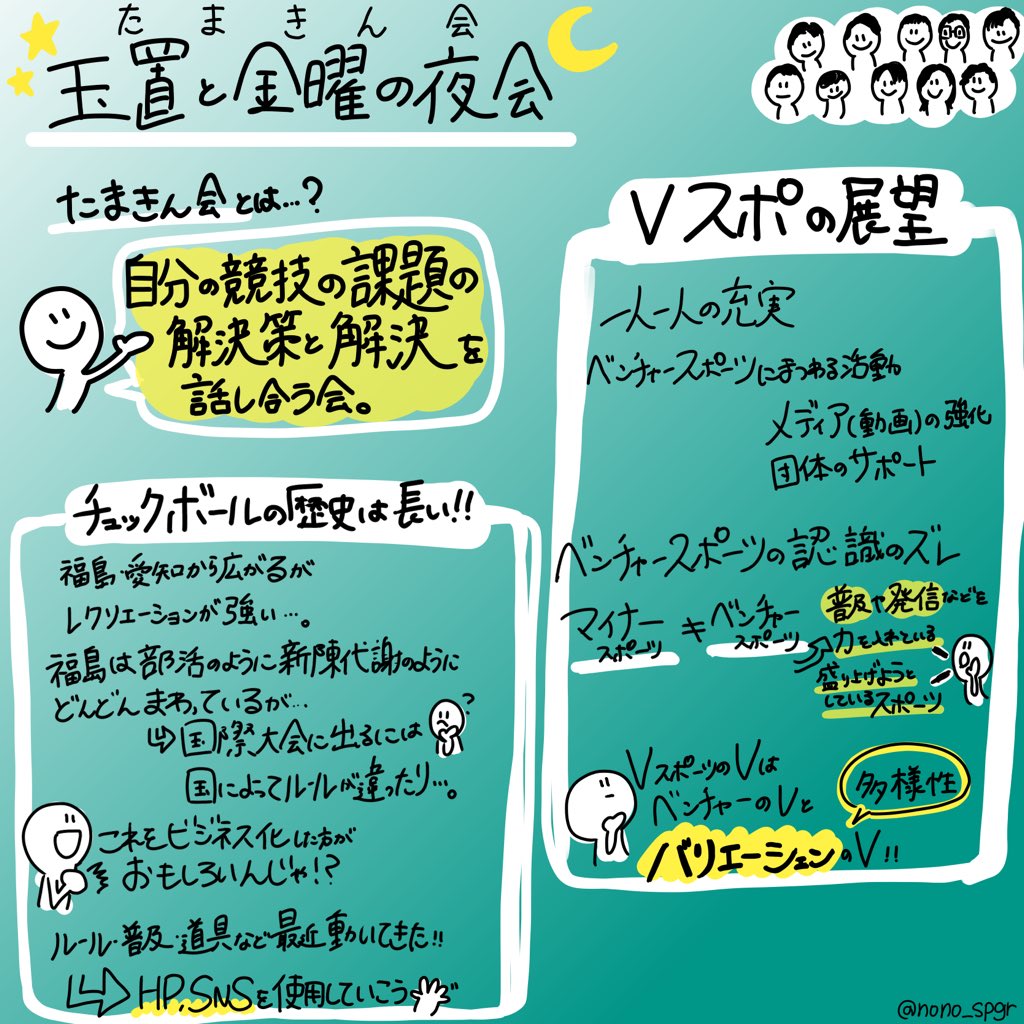 たまきん会
玉置と金曜の夜会
たまきん会とは…?
自分の競技の課題の
解決策と解決を
話し合う会。
チュックボールの歴史は長い!!
福島・愛知から広がるが
レクリエーションが強い…。
福島は部活のように新陳代謝のように
どんどんまわっているが…
国際大会に出るには
?
国によってルールが違ったり…。
これをビジネス化した方が
おもしろいんじゃ!?
ルール・普及・道具など最近動いてきた!!
HP,SNSを使用していこう
Vスポの展望
一人一人の充実
ベンチャースポーツにまつわる活動
メディア(動画)の強化
団体のサポート
ベンチャースポーツの認識のズレ
マイナースポーツ ≠ ベンチャースポーツ
普及や発信などを
力を入れている
盛り上げようと
しているスポーツ
VスポーツのVは
ベンチャーのVと
多様性
バリエーションのV!!
@nono_spgr